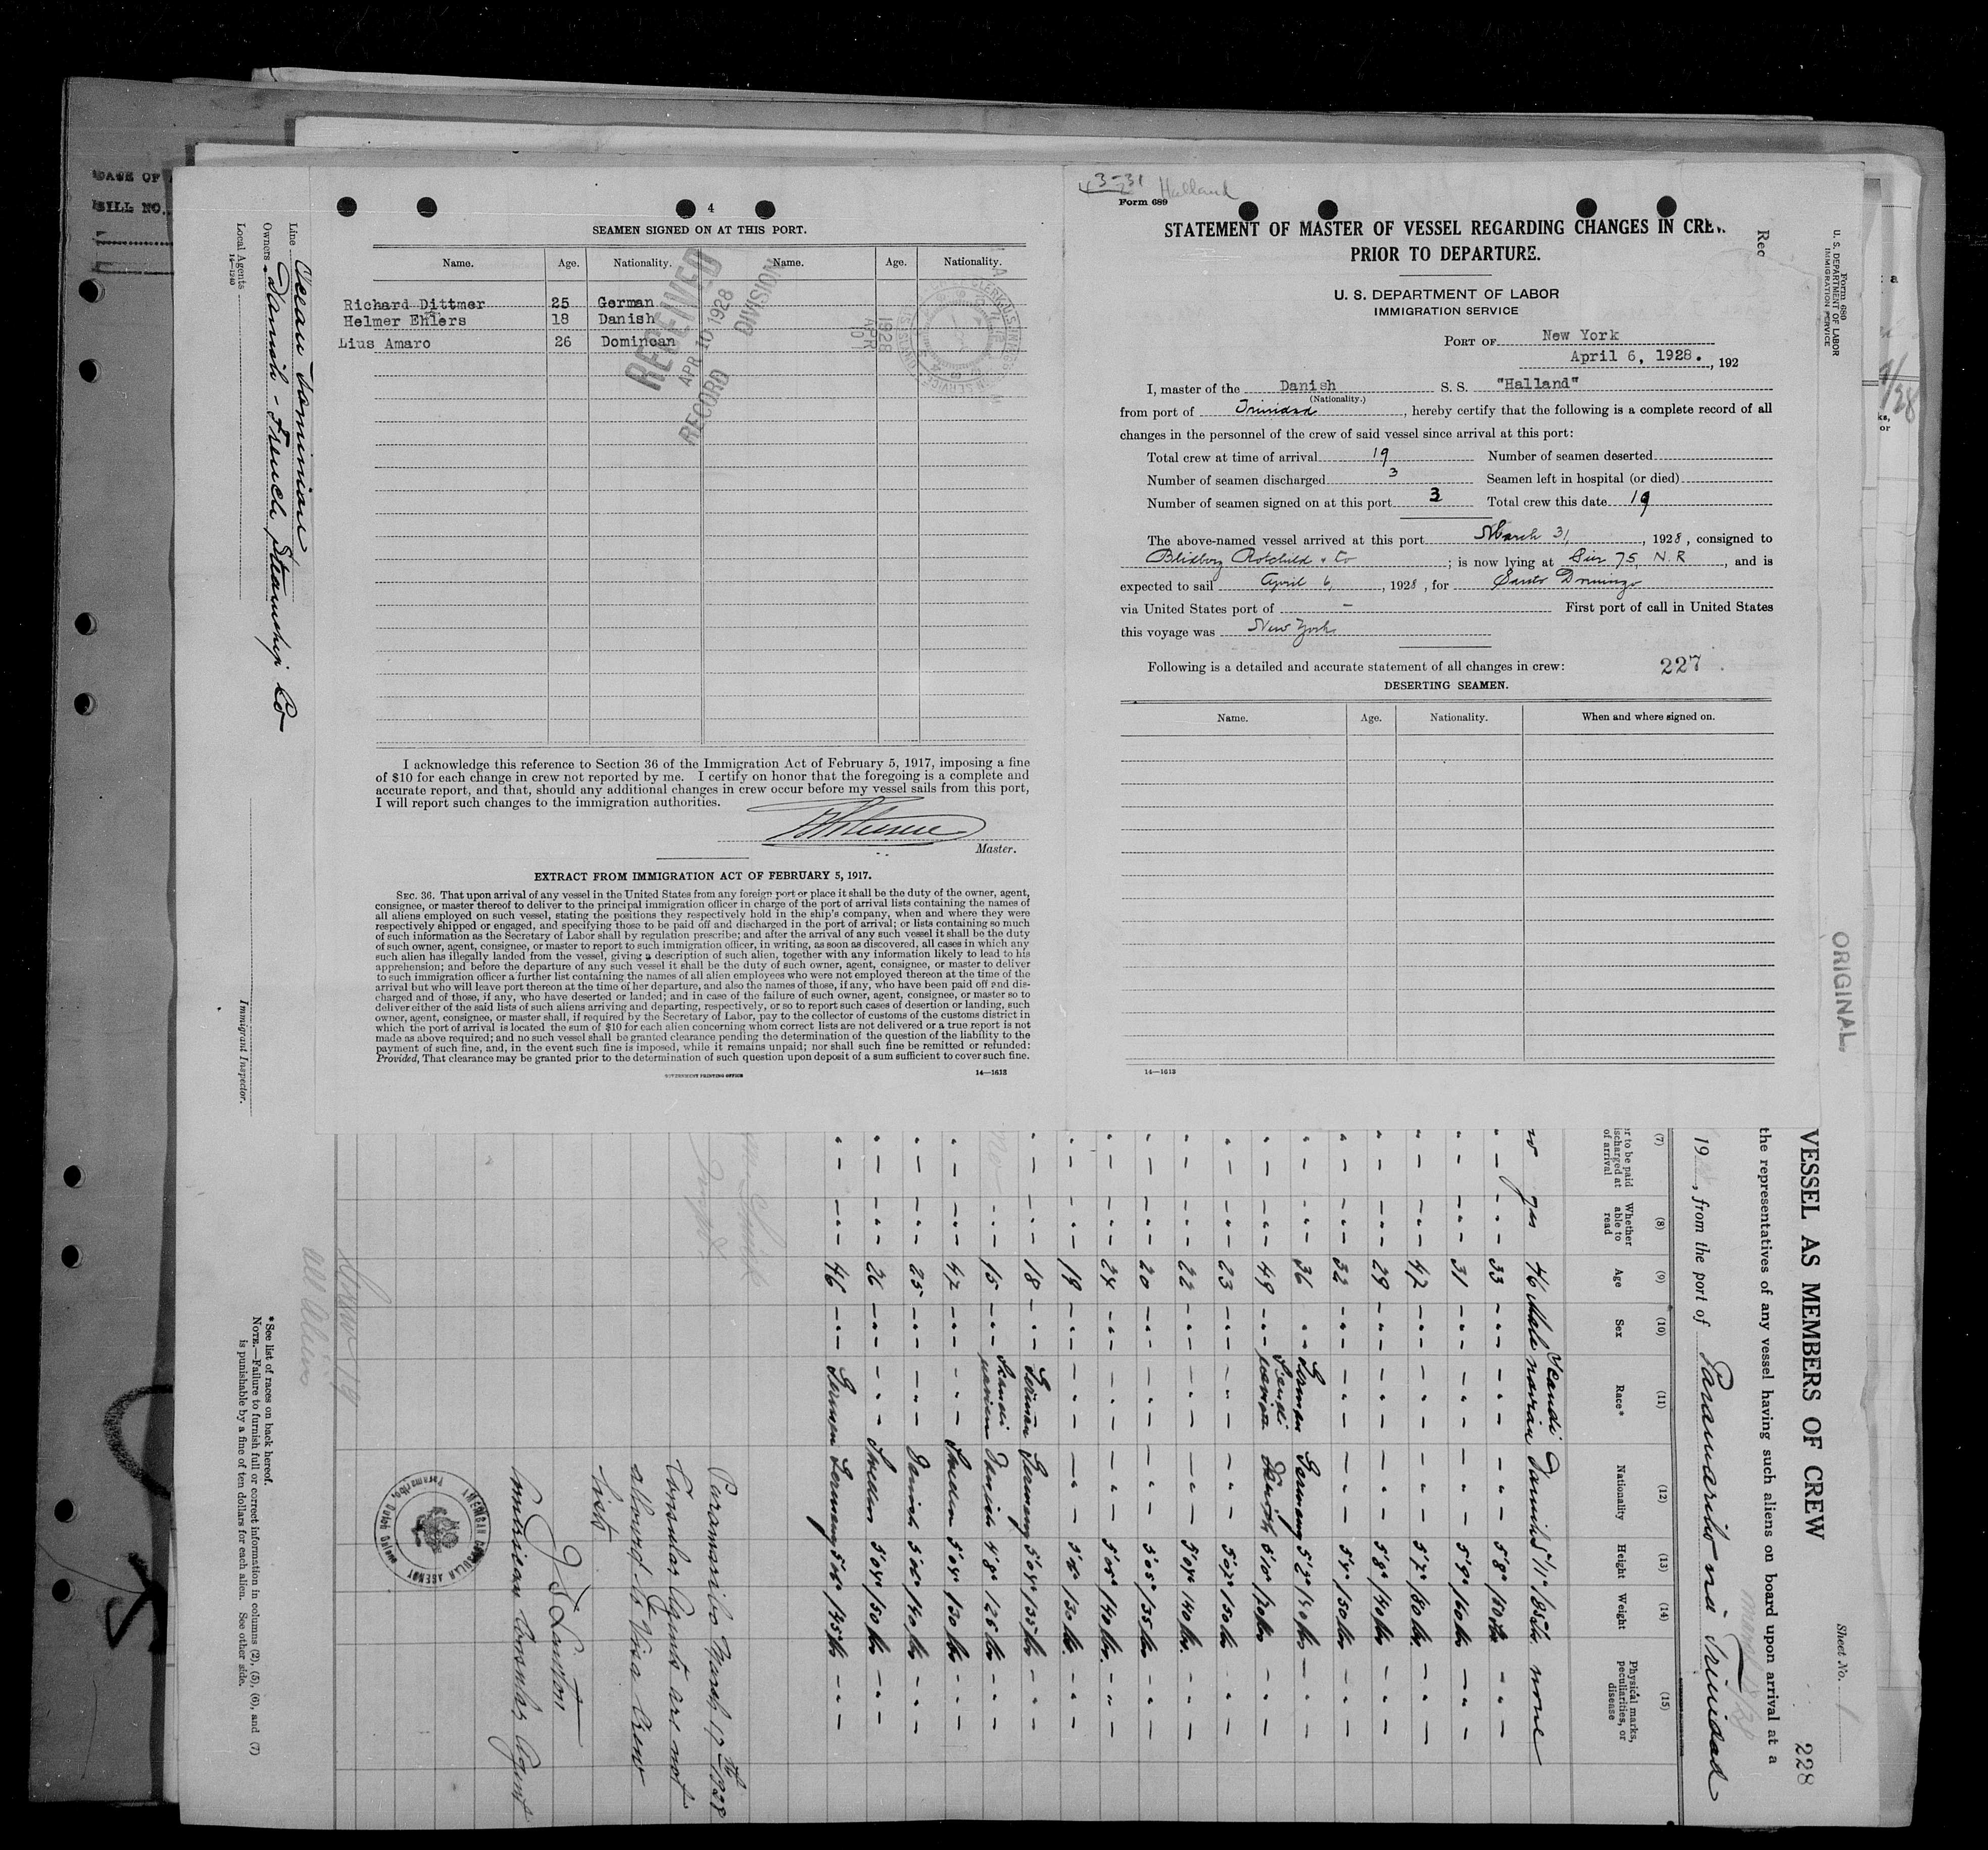 DATE OF
BILL NO.
4
SEAMEN SIGNED ON AT THIS PORT.
Name. Age. Nationality. Name. Age. Nationality.
Richard Dittmer 25 German
Helmer Ehlers 18 Danish
Lius Amaro 26 Domincan
RECEIVED
APR 10 1928
RECORD DIVISION
1928
APR
10
I acknowledge this reference to Section 36 of the Immigration Act of February 5, 1917, imposing a fine
of $10 for each change in crew not reported by me. I certify on honor that the foregoing is a complete and
accurate report, and that, should any additional changes in crew occur before my vessel sails from this port,
I will report such changes to the immigration authorities.
Master.
EXTRACT FROM IMMIGRATION ACT OF FEBRUARY 5, 1917.
SEC. 36. That upon arrival of any vessel in the United States from any foreign port or place it shall be the duty of the owner, agent,
consignee, or master thereof to deliver to the principal immigration officer in charge of the port of arrival lists containing the names of
all aliens employed on such vessel, stating the positions they respectively hold in the ship's company, when and where they were
respectively shipped or engaged, and specifying those to be paid off and discharged in the port of arrival; or lists containing so much
of such information as the Secretary of Labor shall by regulation prescribe; and after the arrival of any such vessel it shall be the duty
of such owner, agent, consignee, or master to report to such immigration officer, in writing, as soon as discovered, all cases in which any
such alien has illegally landed from the vessel, giving a description of such alien, together with any information likely to lead to his
apprehension; and before the departure of any such vessel it shall be the duty of such owner, agent, consignee, or master to deliver
to such immigration officer a further list containing the names of all alien employees who were not employed thereon at the time of the
arrival but who will leave port thereon at the time of her departure, and also the names of those, if any, who have been paid off and dis-
charged and of those, if any, who have deserted or landed; and in case of the failure of such owner, agent, consignee, or master so to
deliver either of the said lists of such aliens arriving and departing, respectively, or so to report such cases of desertion or landing, such
owner, agent, consignee, or master shall, if required by the Secretary of Labor, pay to the collector of customs of the customs district in
which the port of arrival is located the sum of $10 for each alien concerning whom correct lists are not delivered or a true report is not
made as above required; and no such vessel shall be granted clearance pending the determination of the question of the liability to the
payment of such fine, and, in the event such fine is imposed, while it remains unpaid; nor shall such fine be remitted or refunded:
Provided, That clearance may be granted prior to the determination of such question upon deposit of a sum sufficient to cover such fine.
GOVERNMENT PRINTING OFFICE 14—1613
3-31 Halland
Form 689
STATEMENT OF MASTER OF VESSEL REGARDING CHANGES IN CREW
PRIOR TO DEPARTURE.
U. S. DEPARTMENT OF LABOR
IMMIGRATION SERVICE
PORT OF New York
April 6, 1928. , 192
I, master of the Danish S. S. "Halland"
(Nationality.)
from port of Trinidad , hereby certify that the following is a complete record of all
changes in the personnel of the crew of said vessel since arrival at this port:
Total crew at time of arrival 19 Number of seamen deserted
Number of seamen discharged 3 Seamen left in hospital (or died)
Number of seamen signed on at this port 3 Total crew this date 19
The above-named vessel arrived at this port March 31, , 1928 , consigned to
Blidberg Rotchild & Co ; is now lying at Pier 75, N. R , and is
expected to sail April 6, , 1928 , for Santo Domingo
via United States port of – First port of call in United States
this voyage was New York
Following is a detailed and accurate statement of all changes in crew: 227
DESERTING SEAMEN.
Name. Age. Nationality. When and where signed on.
14—1613
Line Ocean Dominion
Owners Danish - French Steamship Co
Local Agents
14—1240
Immigrant Inspector.
Form 680
U. S. DEPARTMENT OF LABOR
IMMIGRATION SERVICE
Rec
ORIGINAL
Sheet No. 1
228
VESSEL AS MEMBERS OF CREW
the representatives of any vessel having such aliens on board upon arrival at a
19 , from the port of Paramaribo via Trinidad
(7) (8) (9) (10) (11) (12) (13) (14) (15)
r to be paid
ischarged at
of arrival
Whether
able to
read
Age
Sex
Race*
Nationality
Height
Weight
Physical marks,
peculiarities, or
disease
no yes 46 Male Scandinavian Danish 5'11" 185 lbs none
33 5'8" 160 lbs
31 5'9" 160 lbs
47 5'7" 180 lbs
29 5'8" 140 lbs
32 5'4" 150 lbs
36 German Germany 5'2" 140 lbs
49 Scandinavian Danish 5'10" 170 lbs
23 5'07" 130 lbs
22 5'04" 140 lbs
20 5'05" 135 lbs
24 5'05" 140 lbs
19 5'06" 130 lbs
18 German Germany 5'04" 135 lbs
15 Scandinavian Danish 4'8" 125 lbs
47 Sweden 5'04" 130 lbs
25 Danish 5'06" 140 lbs
26 Sweden 5'04" 150 lbs
46 German Germany 5'06" 145 lbs
Paramaribo March 17th 1928
Consular Agents are not
allowed to Visa Crew
lists
J S Lawton
American Consular Agent
AMERICAN CONSULAR AGENCY
Paramaribo, Dutch Guiana
Crew 19
all Aliens
* See list of races on back hereof.
NOTE.—Failure to furnish full or correct information in columns (2), (5), (6), and (7)
is punishable by a fine of ten dollars for each alien. See other side.